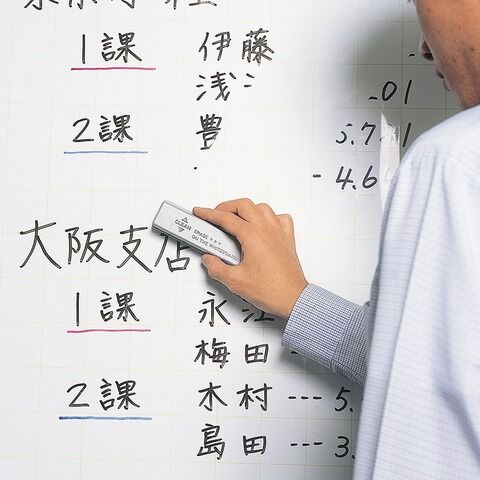 1課 伊藤
浅 .01
2課 豊 5.7 1
- 4.6
CLEAN ERASE
ON THE WHITEBOARD
大阪支店
1課 永江
梅田
2課 木村 --- 5.
島田 --- 3.